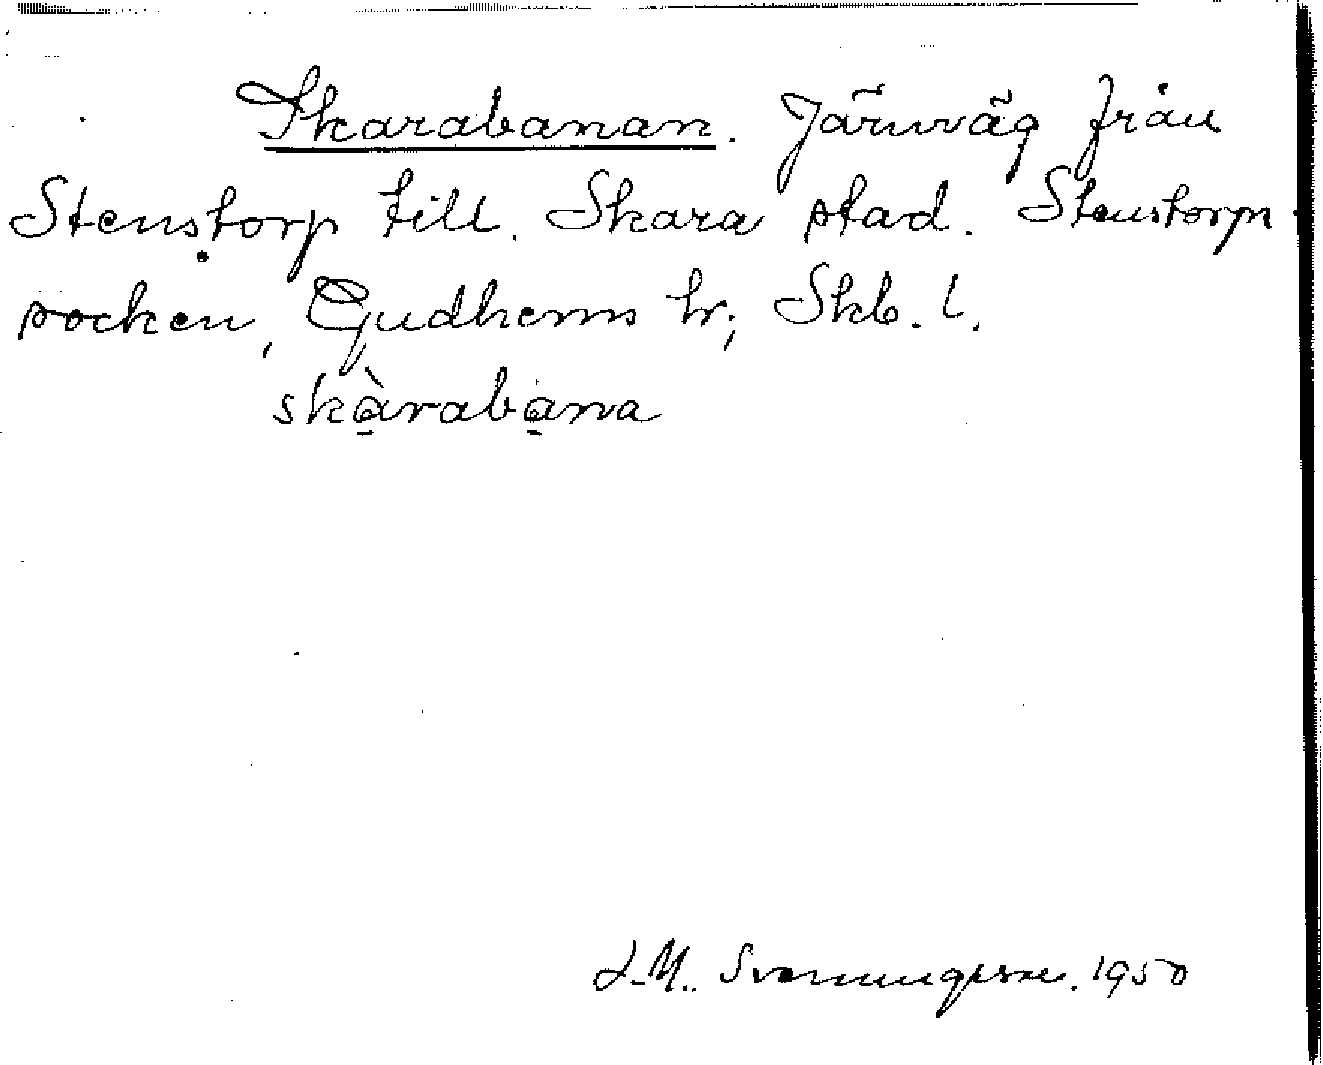 Skarabanan. Järnväg från
Stenstorp till Skara stad. Stenstorps
socken, Gudhems hr, Skb. l.
skàrabana
L-M. Svenningsson. 1950